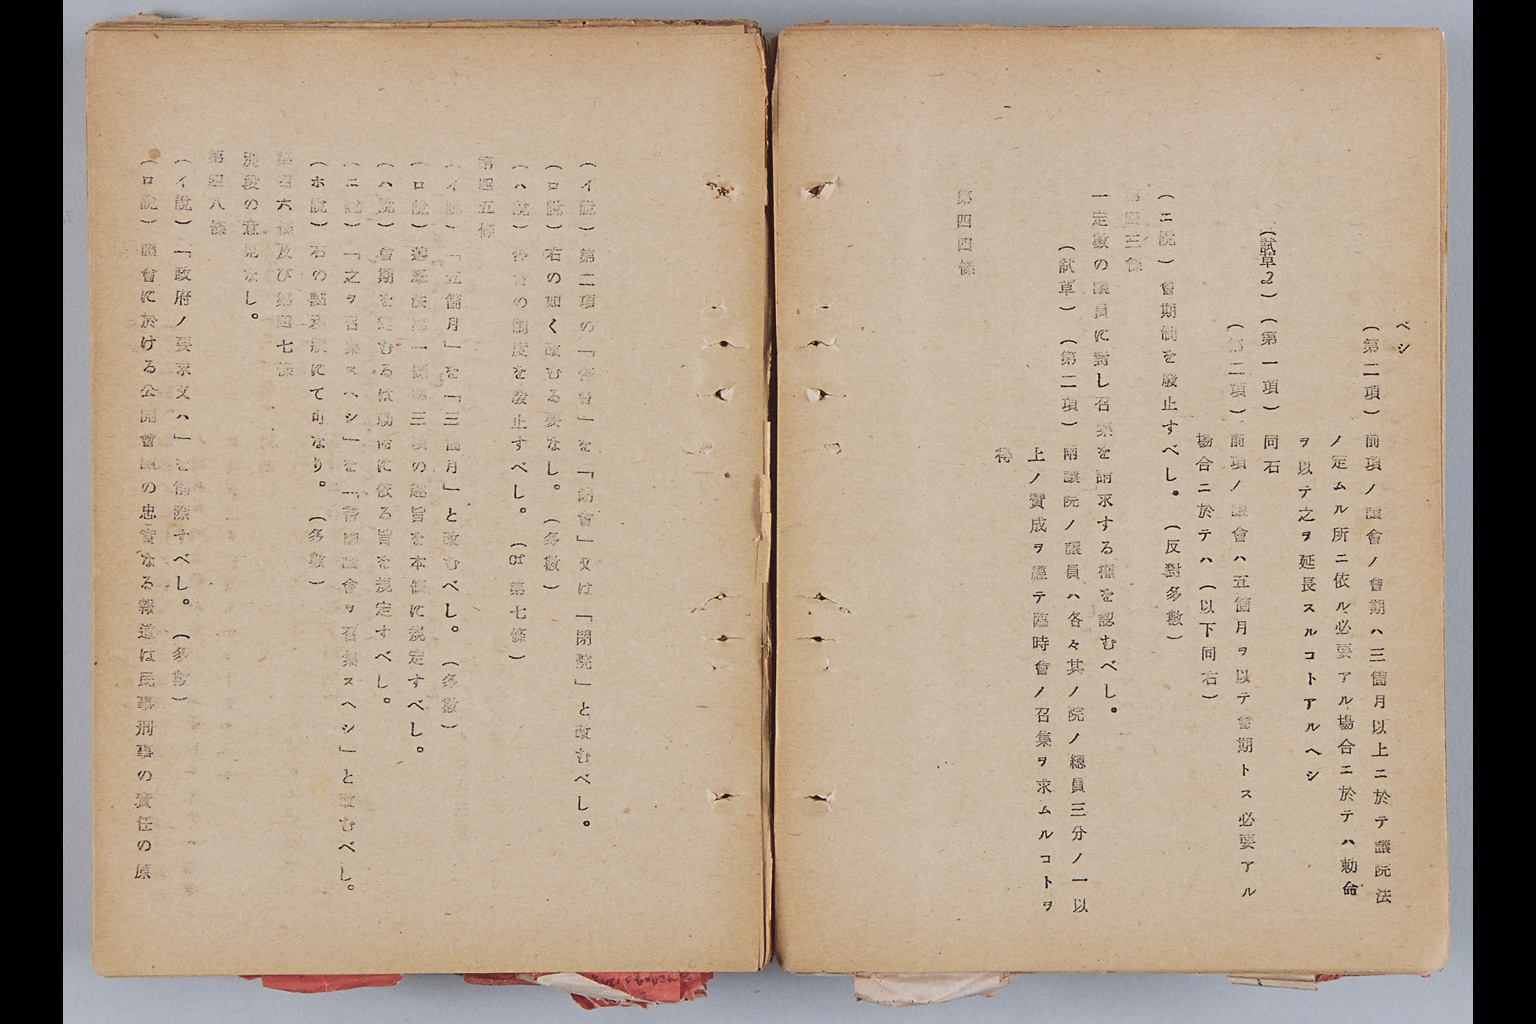 ベシ
(第二項) 前項ノ議會ノ會期ハ三箇月以上ニ於テ議院法
ノ定ムル所ニ依ル必要アル場合ニ於テハ勅命
ヲ以テ之ヲ延長スルコトアルヘシ
(試草2)(第一項) 同右
(第二項) 前項ノ議會ハ五箇月ヲ以テ會期トス必要アル
場合ニ於テハ(以下同右)
(ニ説)會期制を廢止すべし。(反對多數)
第四三條
一定數の議員に對し召集を請求する權を認むべし。
(試草)(第二項) 兩議院ノ議員ハ各々其ノ院ノ總員三分ノ一以
上ノ贊成ヲ經テ臨時會ノ召集ヲ求ムルコトヲ
得
第四四條
(イ説)第二項の「停會」を「閉會」又は「閉院」と改むべし。
(ロ説)右の如く改むる要なし。(多數)
(ハ説)停會の制度を廢止すべし。(cf 第七條)
第四五條
(イ説)「五箇月」を「三箇月」と改むべし。(多數)
(ロ説)選擧法第一條第三項の趣旨を本條に規定すべし。
(ハ説)會期を定むるは勅命に依る旨を規定すべし。
(ニ説)「之ヲ召集スヘシ」を「帝國議會ヲ召集スヘシ」と改むべし。
(ホ説)右の點現狀にて可なり。(多數)
第四六條及び第四七條
別段の意見なし。
第四八條
(イ説)「政府ノ要求又ハ」を削除すべし。(多數)
(ロ説)議會に於ける公開會議の忠實なる報道は民事刑事の責任の原